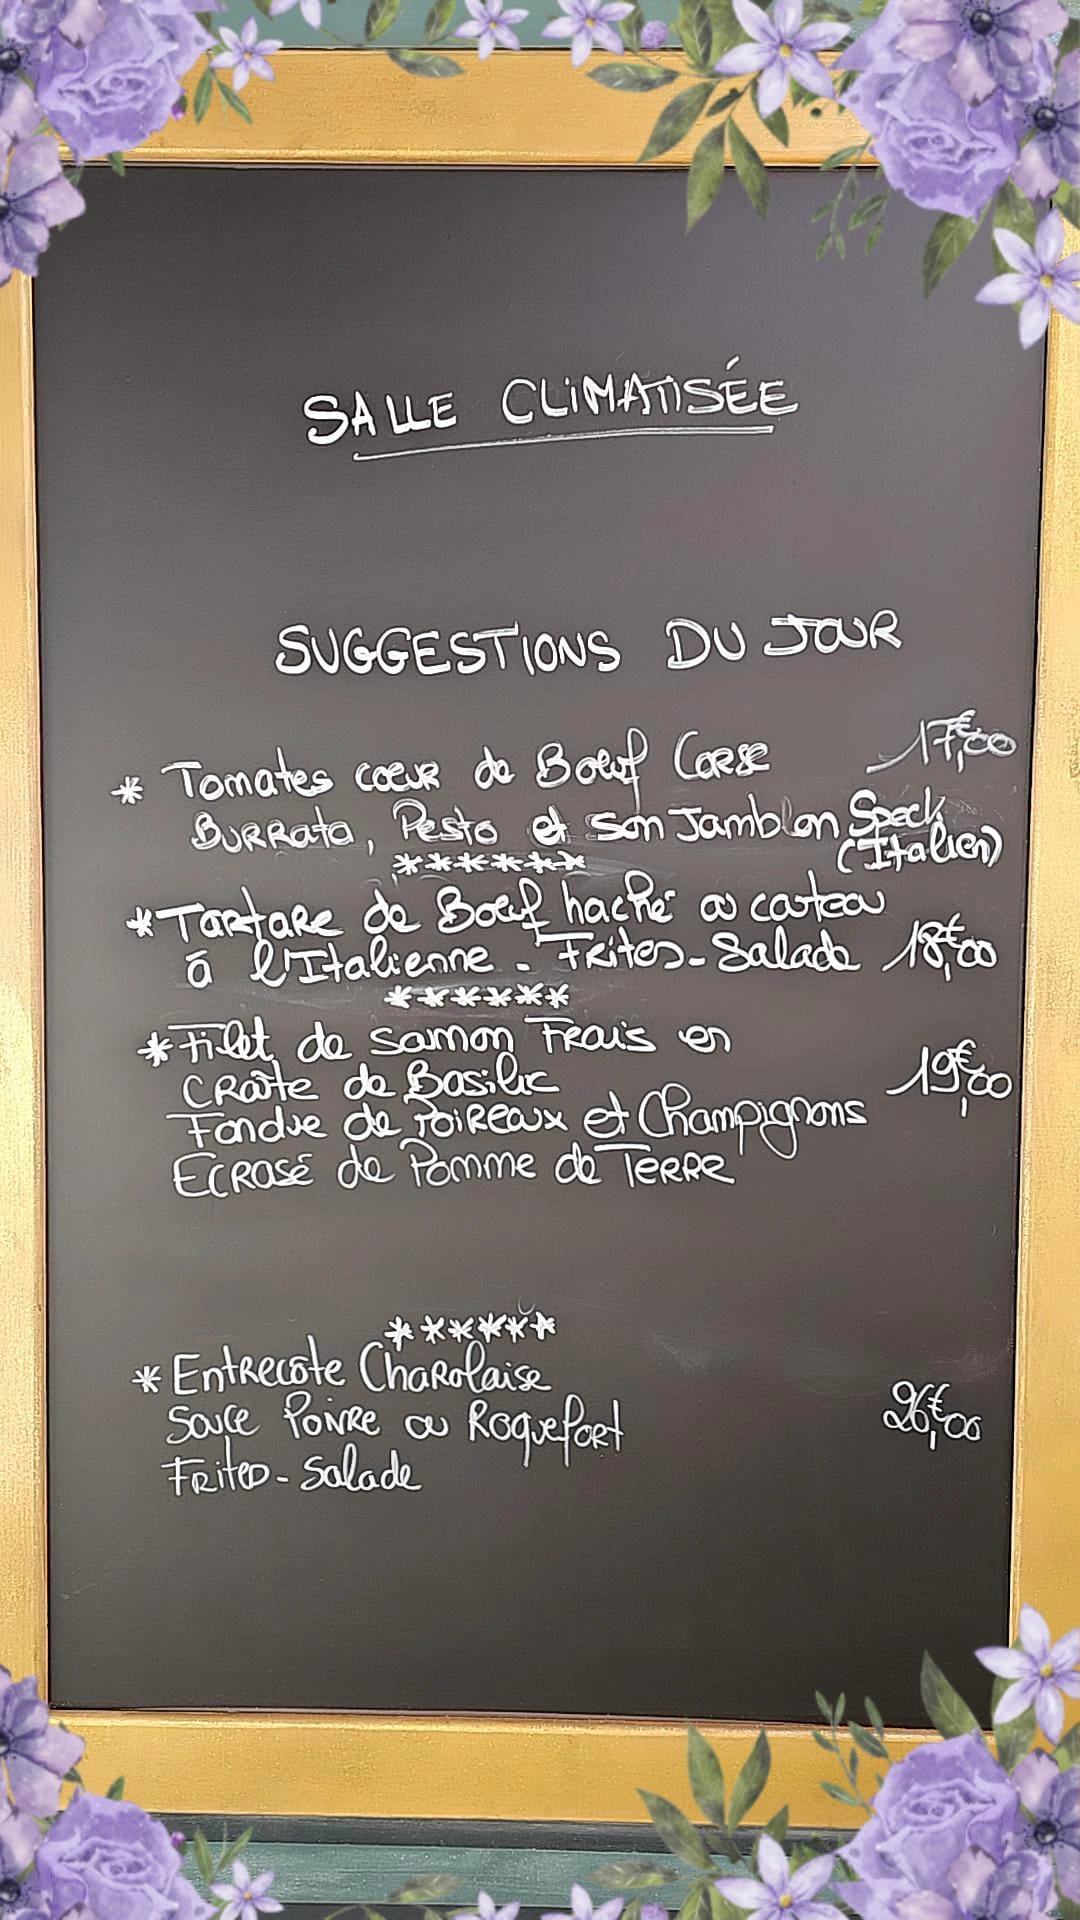 SALLE CLIMATISÉE
SUGGESTIONS DU JOUR
* Tomates coeur de Boeuf Corse 17,€00
Burrata, Pesto et son Jambon Speck
(Italien)
******
* Tartare de Boeuf haché ou couteau
à l'Italienne - Frites - Salade 18,€00
******
* Filet de samon Frais en
Croûte de Basilic 19,€00
Fondue de Poireaux et Champignons
Ecrasé de Pomme de Terre
******
* Entrecôte Charolaise
Sauce Poivre ou Roquefort 26,€00
Frites - Salade